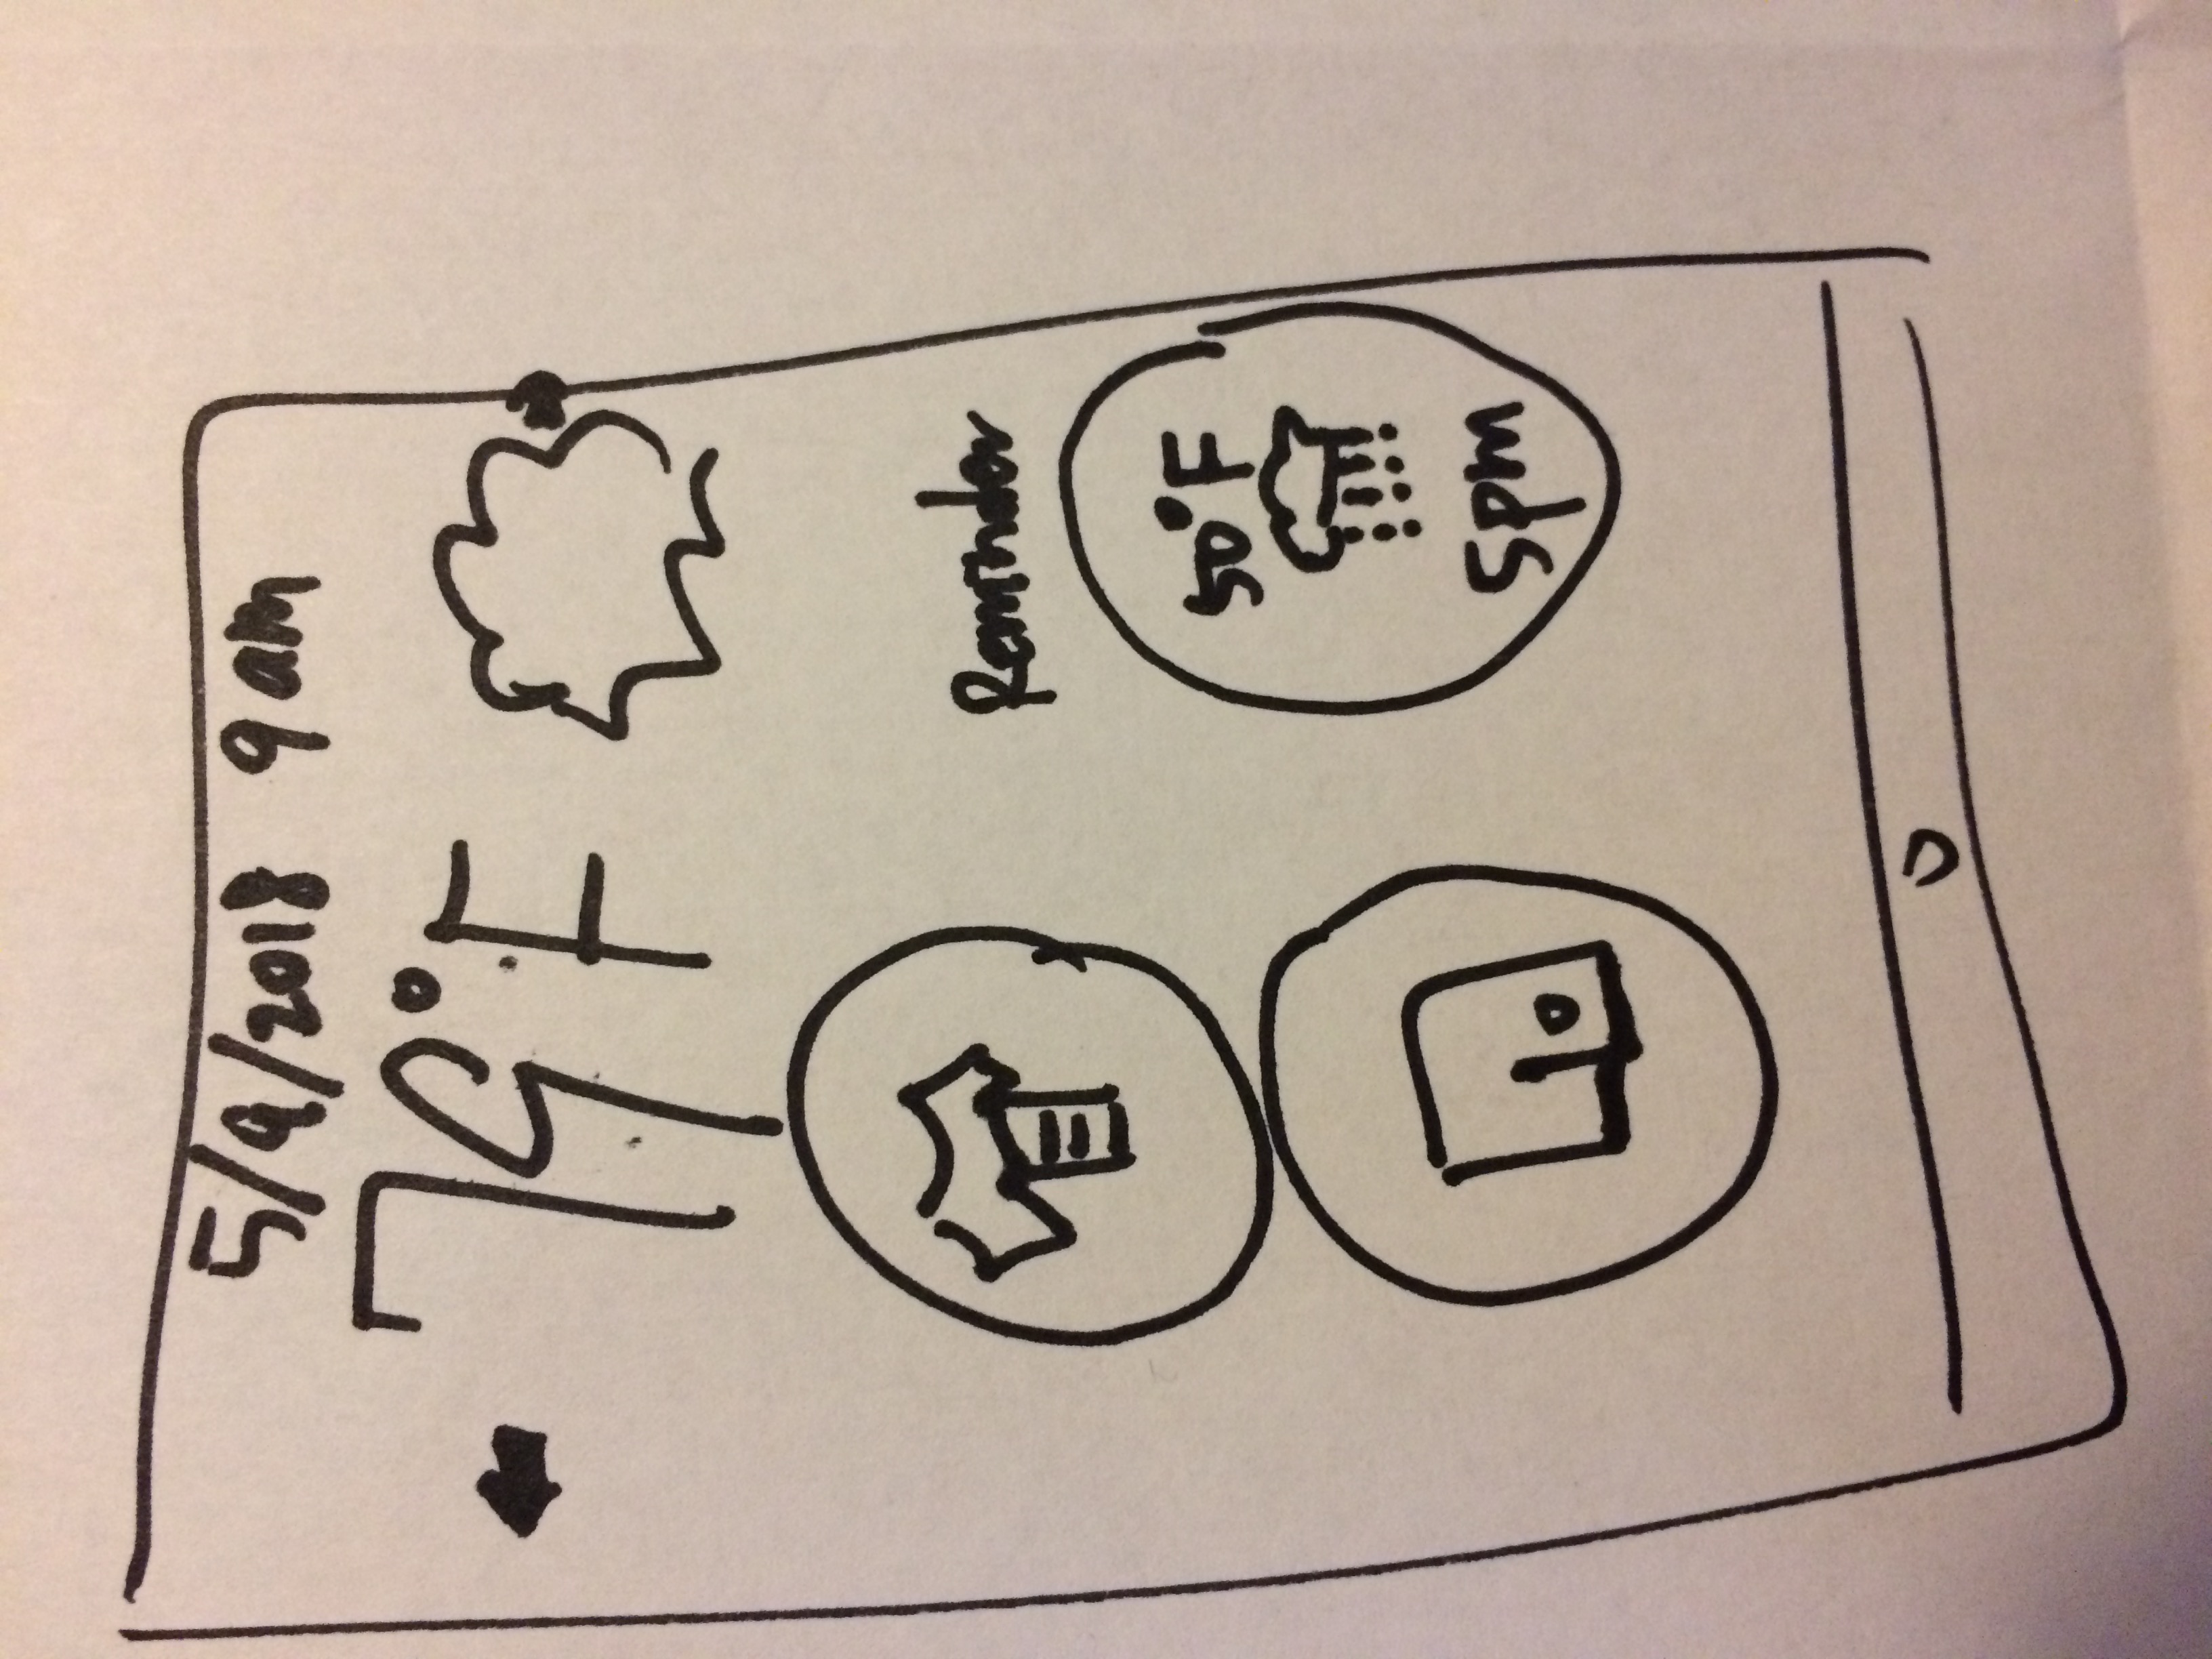 5/9/2018 9am
79°F
Reminder
50°F
5pm